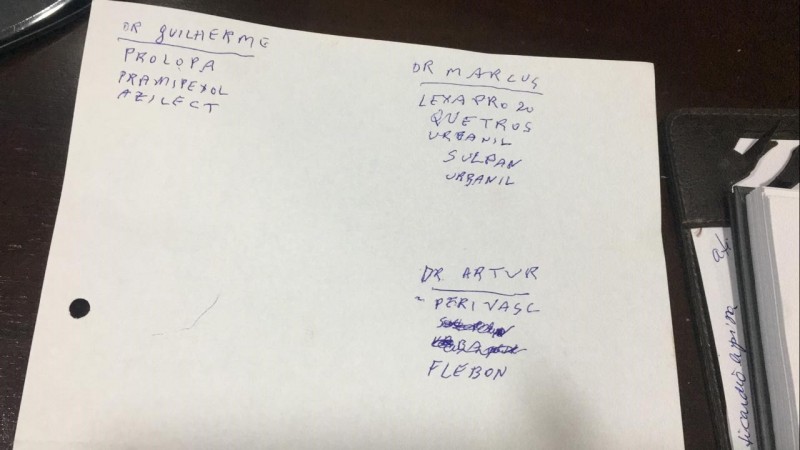 DR GUILHERME
PROLOPA
PRAMIPEXOL
AZILECT
DR MARCUS
LEXAPRO 20
QUETROS
URBANIL
SULPAN
URBANIL
DR ARTUR
PERIVASC
FLEBON